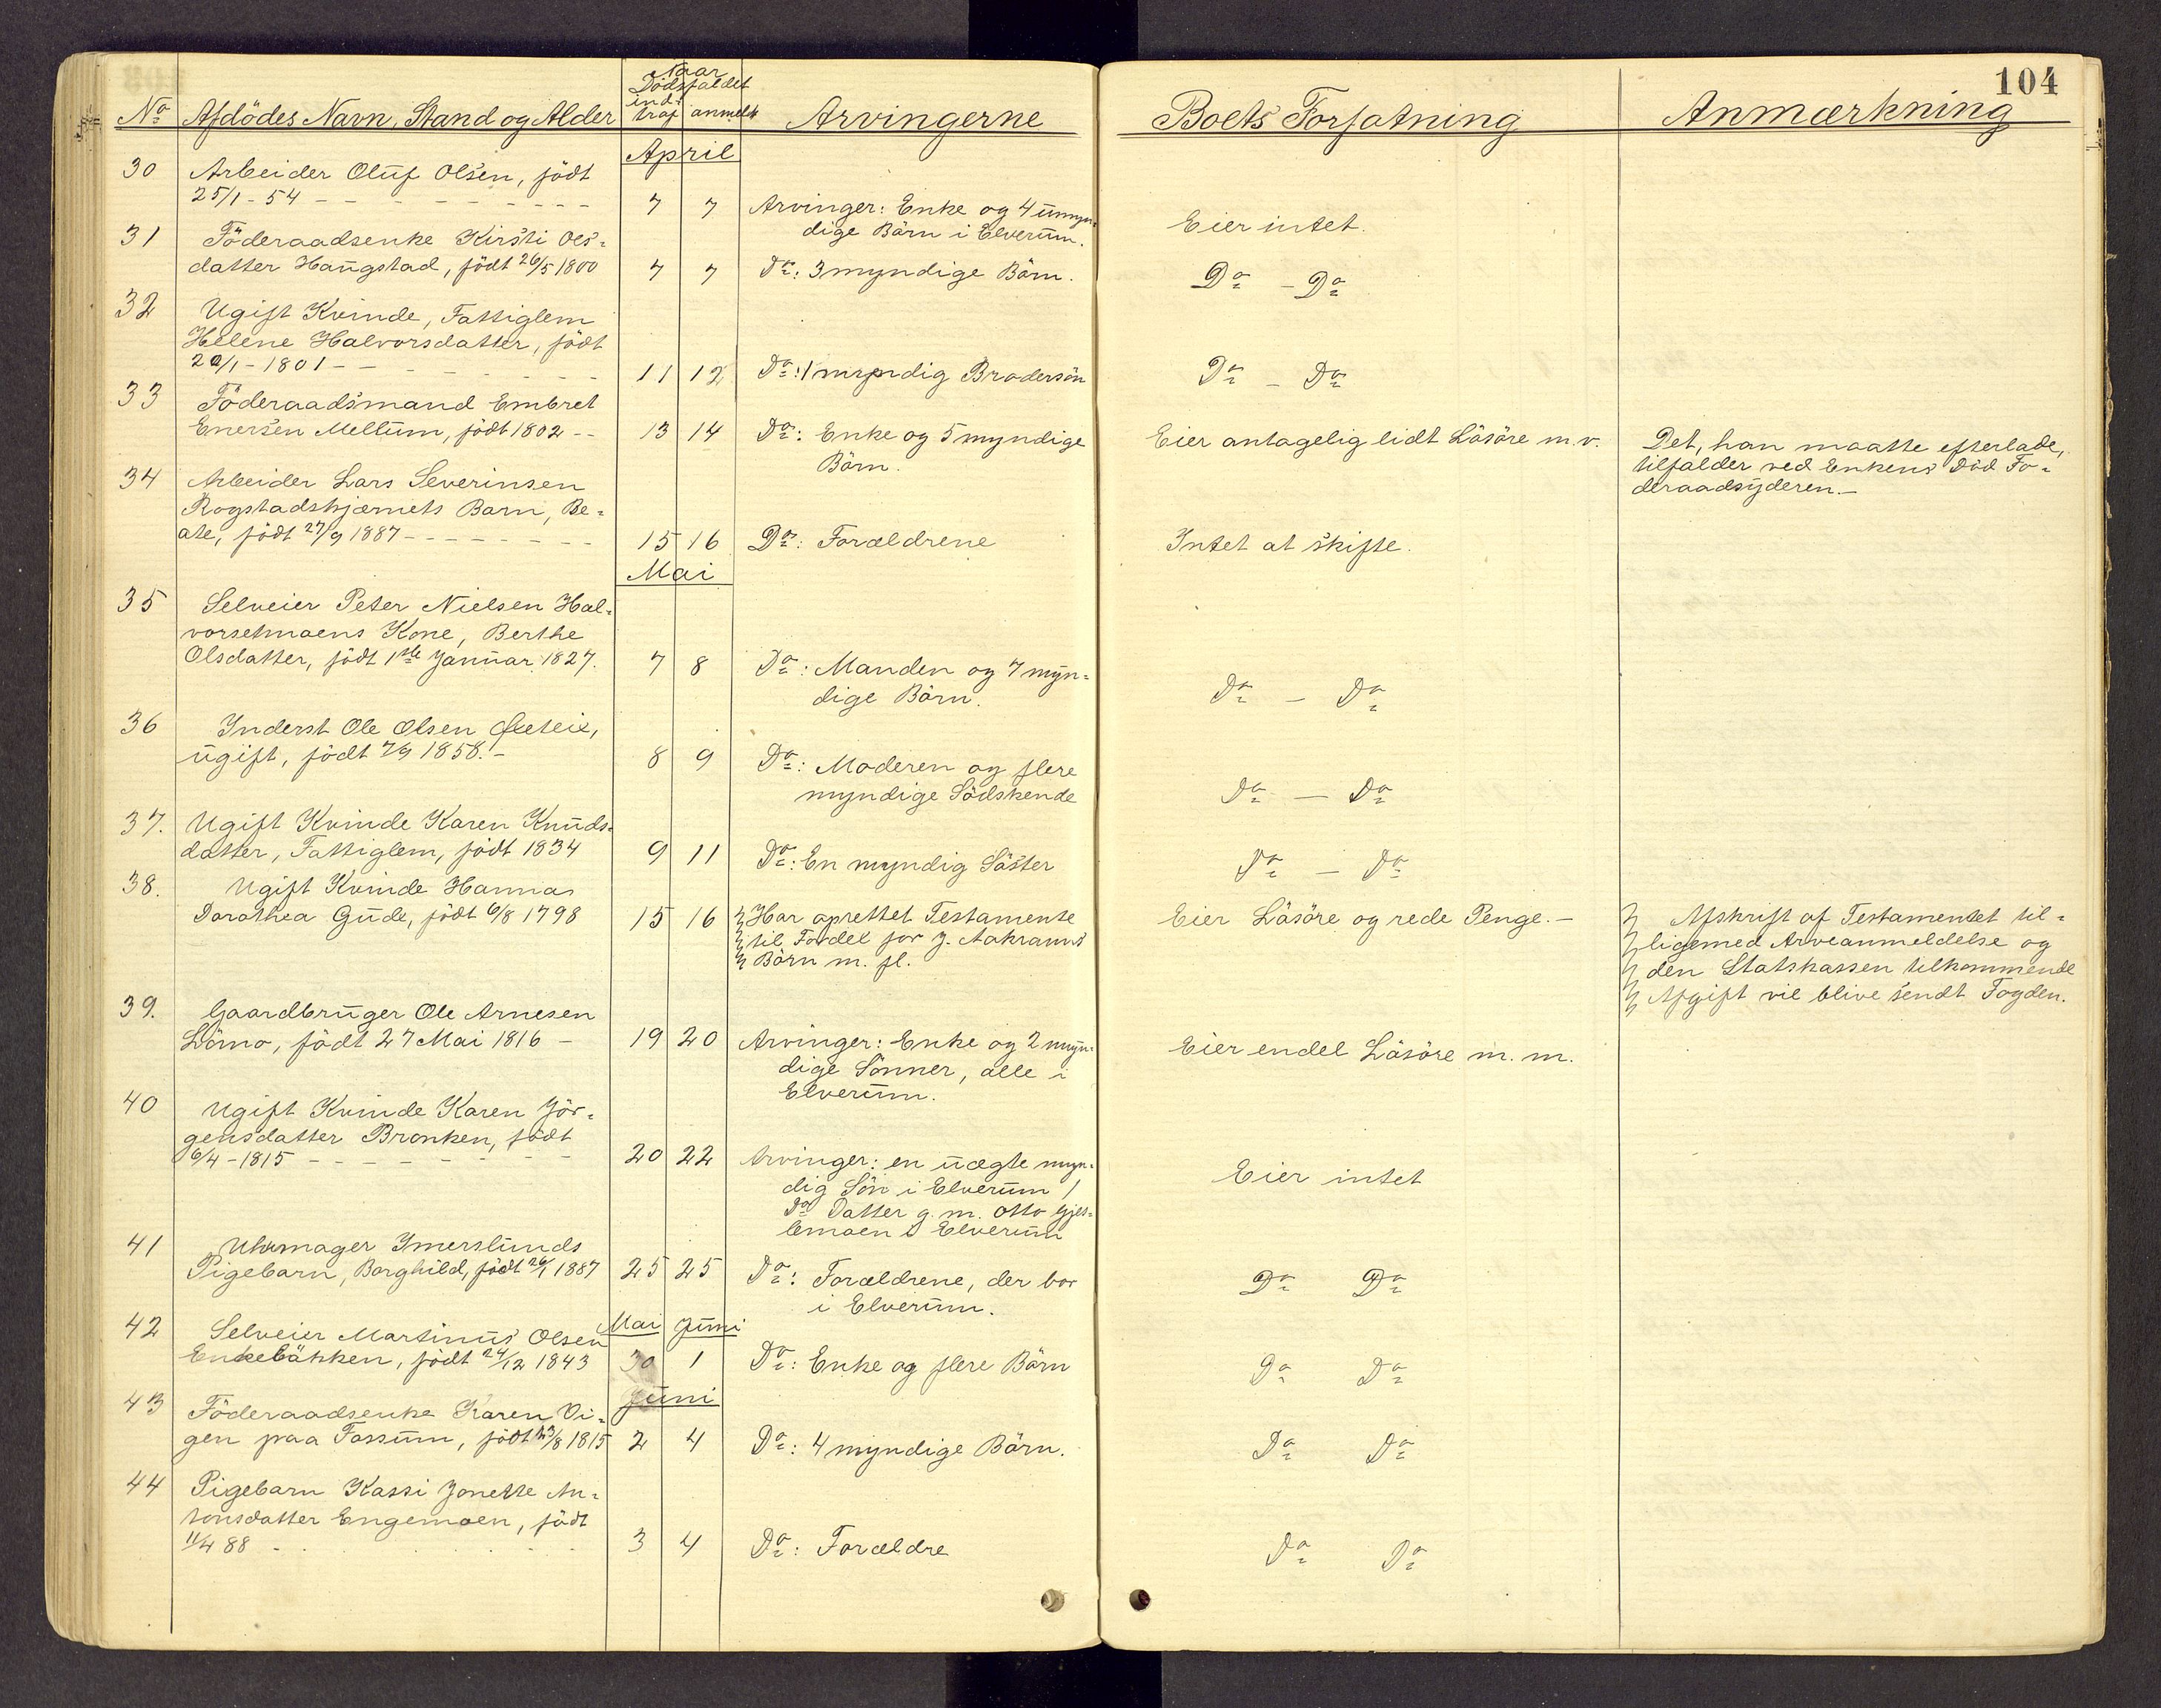 104
No Afdödes Navn, Stand og Alder
Naar
Dödsfaldet
ind-
traf anmeldt
Arvingerne
Boets Forfatning
Anmærkning
April
30 Arbeider Oluf Olsen, födt
25/1 - 54 - - - - - - - - - 7 7 Arvinger: Enke og 4 umyn-
dige Börn i Elverum. Eier intet.
31 Föderaadsenke Kirsti Ols-
datter Haugstad, födt 26/5 1800 7 7 Do: 3 myndige Börn. Do - Do
32 Ugift Kvinde, Fattiglem
Helene Halvorsdatter, födt
/1 - 1801 - - - - - - - - 11 12 Do: 1 myndig Brodersön Do - Do
33 Föderaadsmand Embret
Enersen Mellum, födt 1802 - - 13 14 Do: Enke og 5 myndige
Börn. Eier antagelig lidt Lösöre m.v. Det, han maatte efterlade,
tilfalder ved Enkens Död Fö-
deraadsyderen. -
34 Arbeider Lars Severinsen
Rogstadskjærnets Barn, Be-
ate, födt 27/9 1887 - - - - - - - - 15 16 Do: Forældrene Intet at skifte.
Mai
35 Selveier Peter Nielsen Hal-
vorsetmoens Kone, Berthe
Olsdatter, födt 1ste Januar 1827. 7 8 Do: Manden og 7 myn-
dige Börn. Do - Do
36 Inderst Ole Olsen
ugift, födt 7/9 1858. - 8 9 Do: Moderen og flere
myndige Södskende Do - Do
37. Ugift Kvinde Karen Knuds-
datter, Fattiglem, födt 1834 9 11 Do: En myndig Söster Do - Do
38. Ugift Kvinde Hanna
Dorothea Gude, födt 6/8 1798 15 16 Har oprettet Testamente
til Fordel for J. Aakranns
Börn m. fl. Eier Lösöre og rede Penge. - Afskrift af Testamentet til-
ligemed Arveanmeldelse og
den Statskassen tilkommende
Afgift vil blive sendt Fogden.
39. Gaardbruger Ole Arnesen
Lömo, födt 27 Mai 1816 - 19 20 Arvinger: Enke og 2 myn-
dige Sönner, alle i
Elverum. Eier endel Lösöre m. m.
40 Ugift Kvinde Karen Jör-
gensdatter Bronken, födt
6/4 - 1815 - - - - - - - - 20 22 Arvinger: en uægte myn-
dig Sön i Elverum /
Do Datter g. m. Otto Gjes-
lemoen i Elverum Eier intet
41 Uhrmager Ymerslunds
Pigebarn, Borghild, födt 26/1 1887 25 25 Do: Forældrene, der bor
i Elverum. Do Do
Mai Juni
42 Selveier Martinus Olsen
Enkebäkken, födt 24/12 1843 30 1 Do: Enke og flere Börn Do Do
Juni
43 Föderaadsenke Karen Vi-
gen paa Fossum, födt 23/8 1815 2 4 Do: 4 myndige Börn. Do Do
44 Pigebarn Kassi Jonette An-
tonsdatter Engemoen, födt
11/4 88 - 3 4 Do: Forældre Do Do